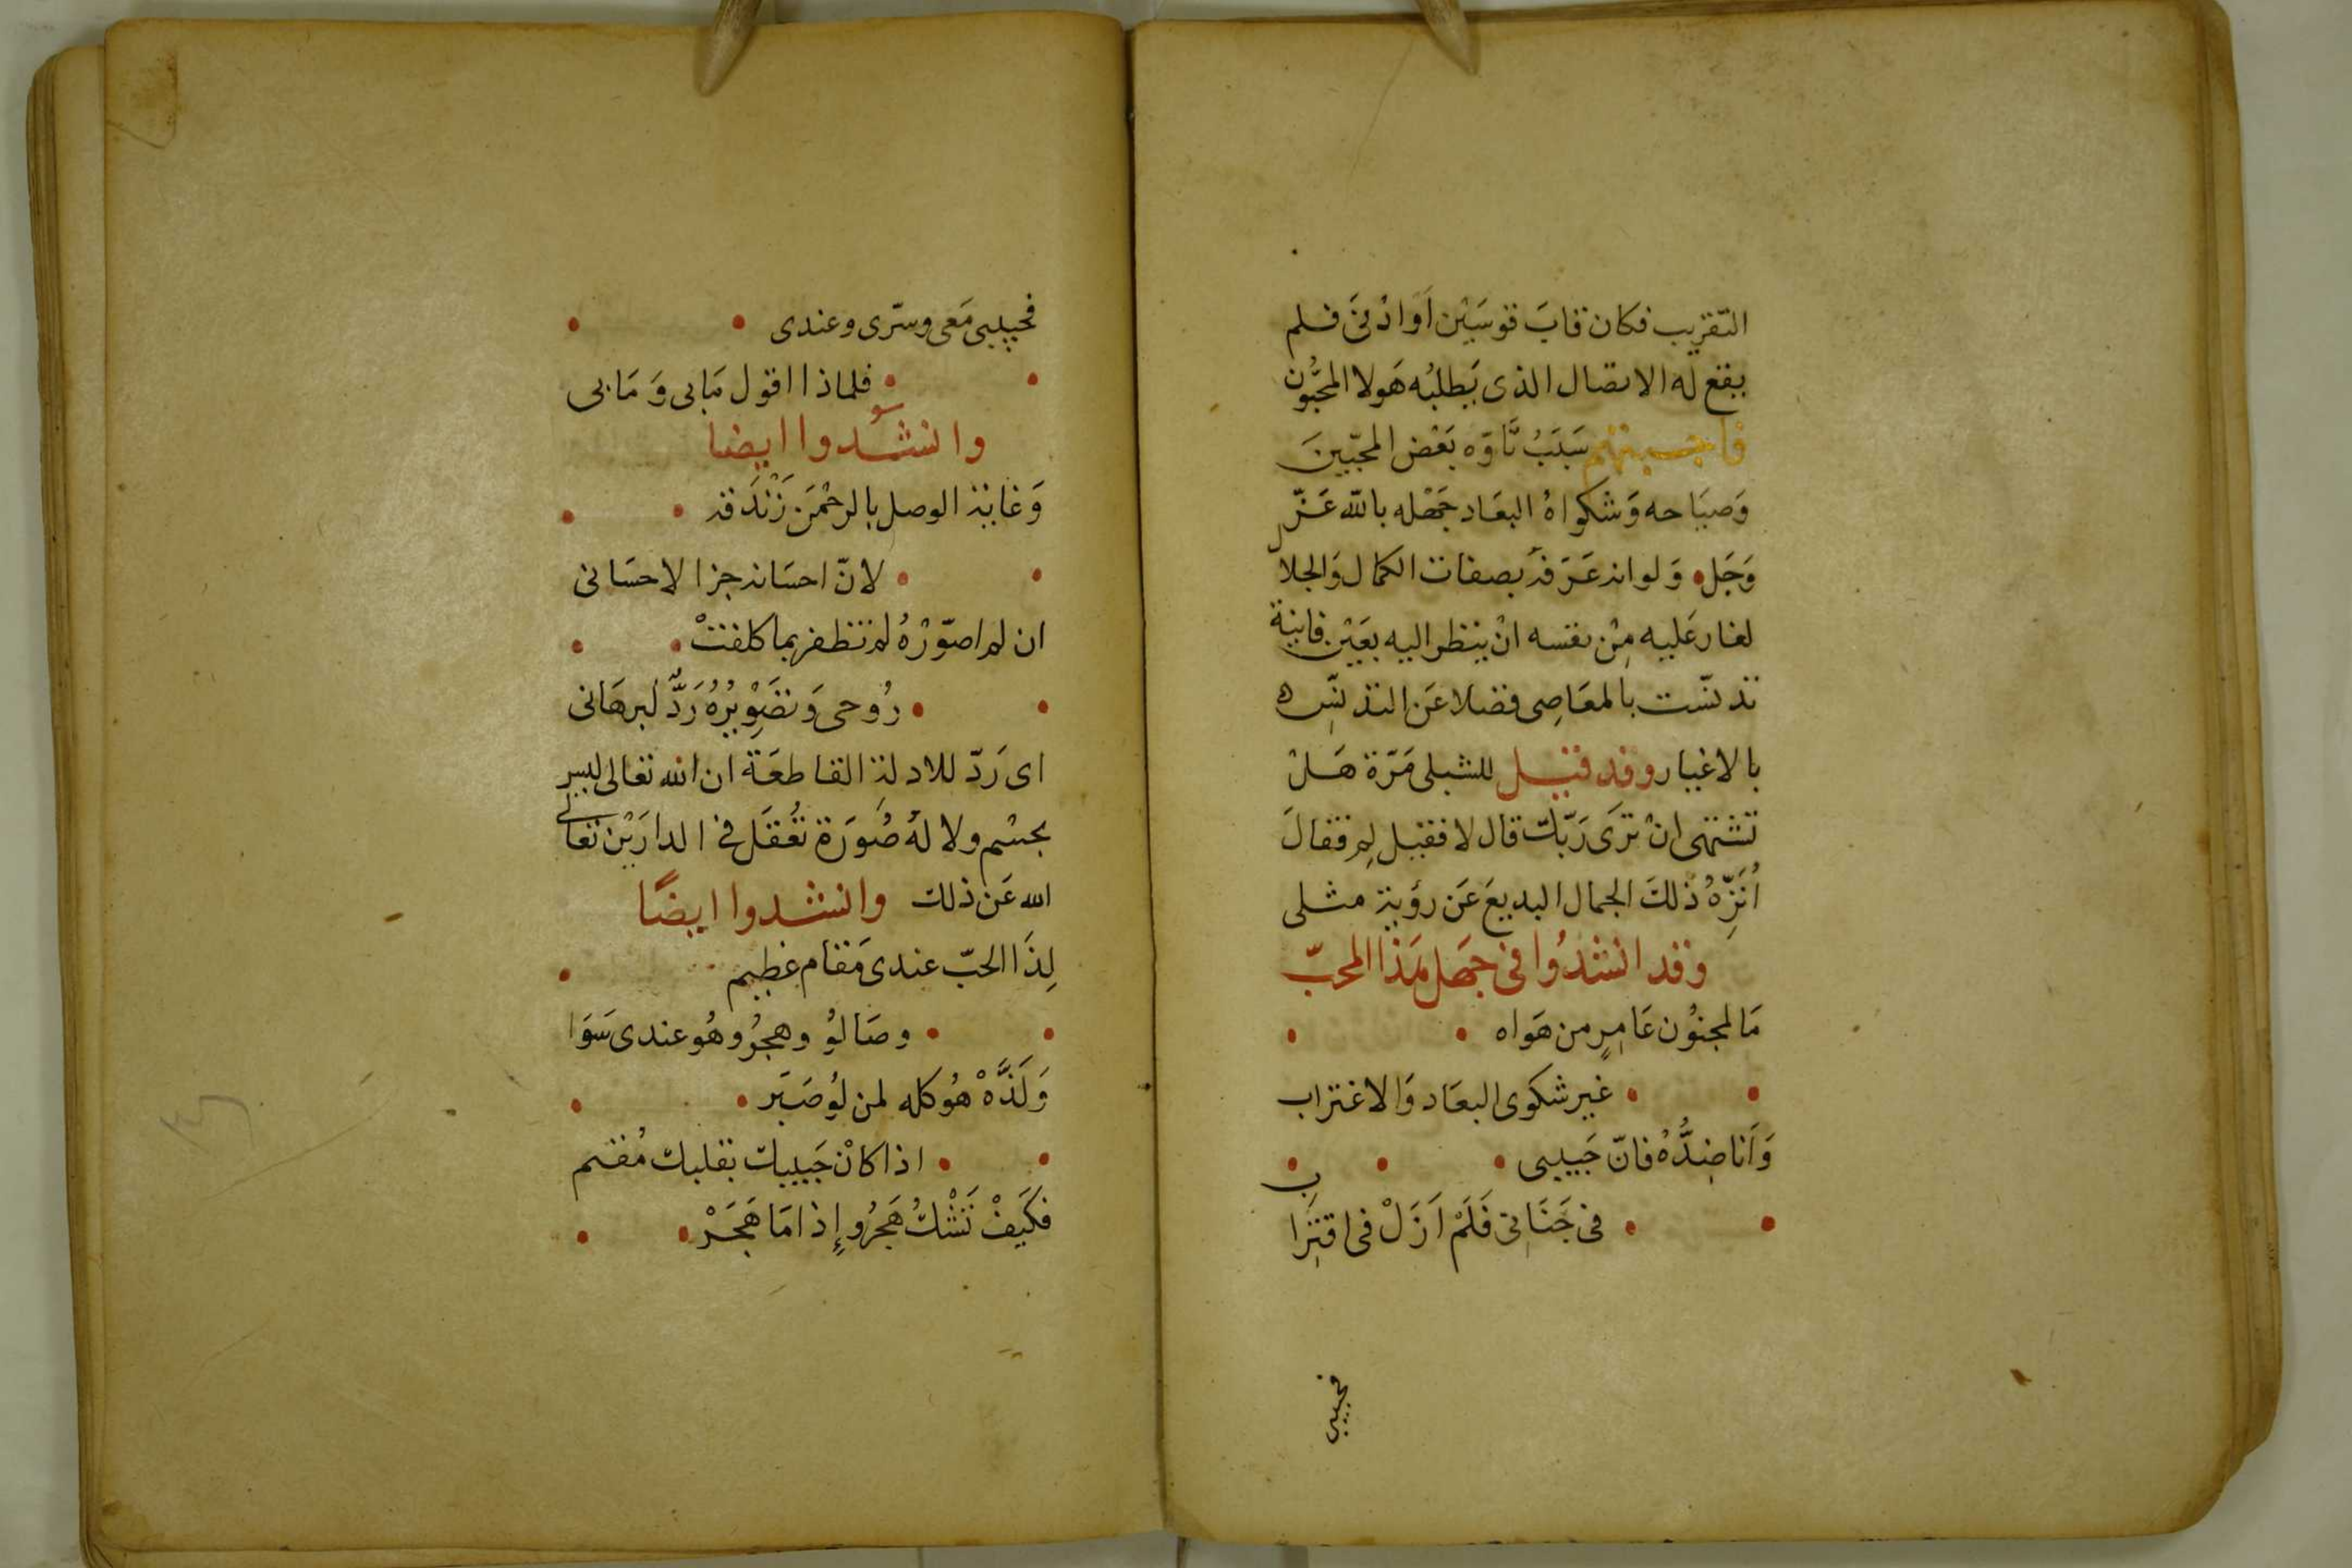 التقريب فكان قابَ قوسَيْن اَوادْنىَ فلم
يقع له الاتصال الذى يَطلبُه هَولا المحبُّون
فاجبتهم سَبَبُ تَّاوّه بَعْض المحبّينَ
وَصيَاحه وَشكواهُ البعَاد جَهْله بالله عَزّ
وَجَل وَلوانه عَرَفه بصفات الكمال وَالجلال
لغار عَليه مِنْ نفسه انْ ينظر اليه بعَيْن فانية
تدنسّت بالمعَاصِى فضلا عَن التدنسّه
بالاغيار وقد قيل للشبلى مَرّة هَلْ
تشتهى انْ ترَى رَبّك قال لا فقيل لِم فقالَ
اُنَزِّهُ ذلكَ الجمال البديعَ عَن رؤية مثلى
وقد انشدُوا فى جهَل هَذا المحبّ
مَا لمجنوُن عَامِرٍ من هَواه
غير شكوَى البعَاد وَالاغتراب
وَاَنا ضِدُّهُ فانّ حَبيبى
فى جَنَانى فَلَمْ اَزَلْ فى اقتِراب
فحبيبى
فحبيبى مَعى وسّرى وعندى
فلماذا اقول مَابى وَمَابى
وانشدوا ايضا
وَغاية الوصل بالرحْمَن زَنْدَقه
لانّ احسَانه جزا لاحسَانى
ان لم اصوّرْهُ لم تظفر بما كلفتْ
رُوحى وَتصَوِيرُهُ رَدٌّ لبرهَانى
اى رَدّ للادلة القاطعَة ان الله تعالى ليس
بجسْم ولا لهُ صُورَة تُعْقَل فى الدارَيْن تعالى
الله عَن ذلك وانشدوا ايضًا
لِذَا الحبّ عندى مَقام عظيم
وصَالوُ وهجرُو هُو عندى سَوَا
وَلَذَّهْ هُو كله لمن لوُ صَبَر
اذا كانْ حَبيبك بقلبك مُقيم
فكَيَفْ تَشْكُ هَجرُو إِذا مَا هَجَرْ